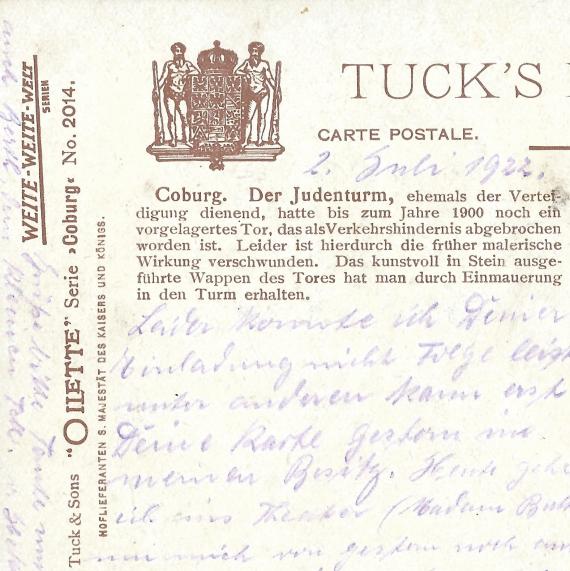 TUCK'S
CARTE POSTALE.
2. Juli 1922.
Coburg. Der Judenturm, ehemals der Vertei-
digung dienend, hatte bis zum Jahre 1900 noch ein
vorgelagertes Tor, das als Verkehrshindernis abgebrochen
worden ist. Leider ist hierdurch die früher malerische
Wirkung verschwunden. Das kunstvoll in Stein ausge-
führte Wappen des Tores hat man durch Einmauerung
in den Turm erhalten.
Leider konnte ich Deiner
Einladung nicht Folge leist
unter anderem kam erst
Deine Karte gestern in
meinen Besitz. Heute gehe
ich ins Theater (Madam But
mich von gestern noch
WEITE-WEITE-WELT
SERIEN
Tuck & Sons "OILETTE" Serie »Coburg« No. 2014.
HOFLIEFERANTEN S. MAJESTÄT DES KAISERS UND KÖNIGS.